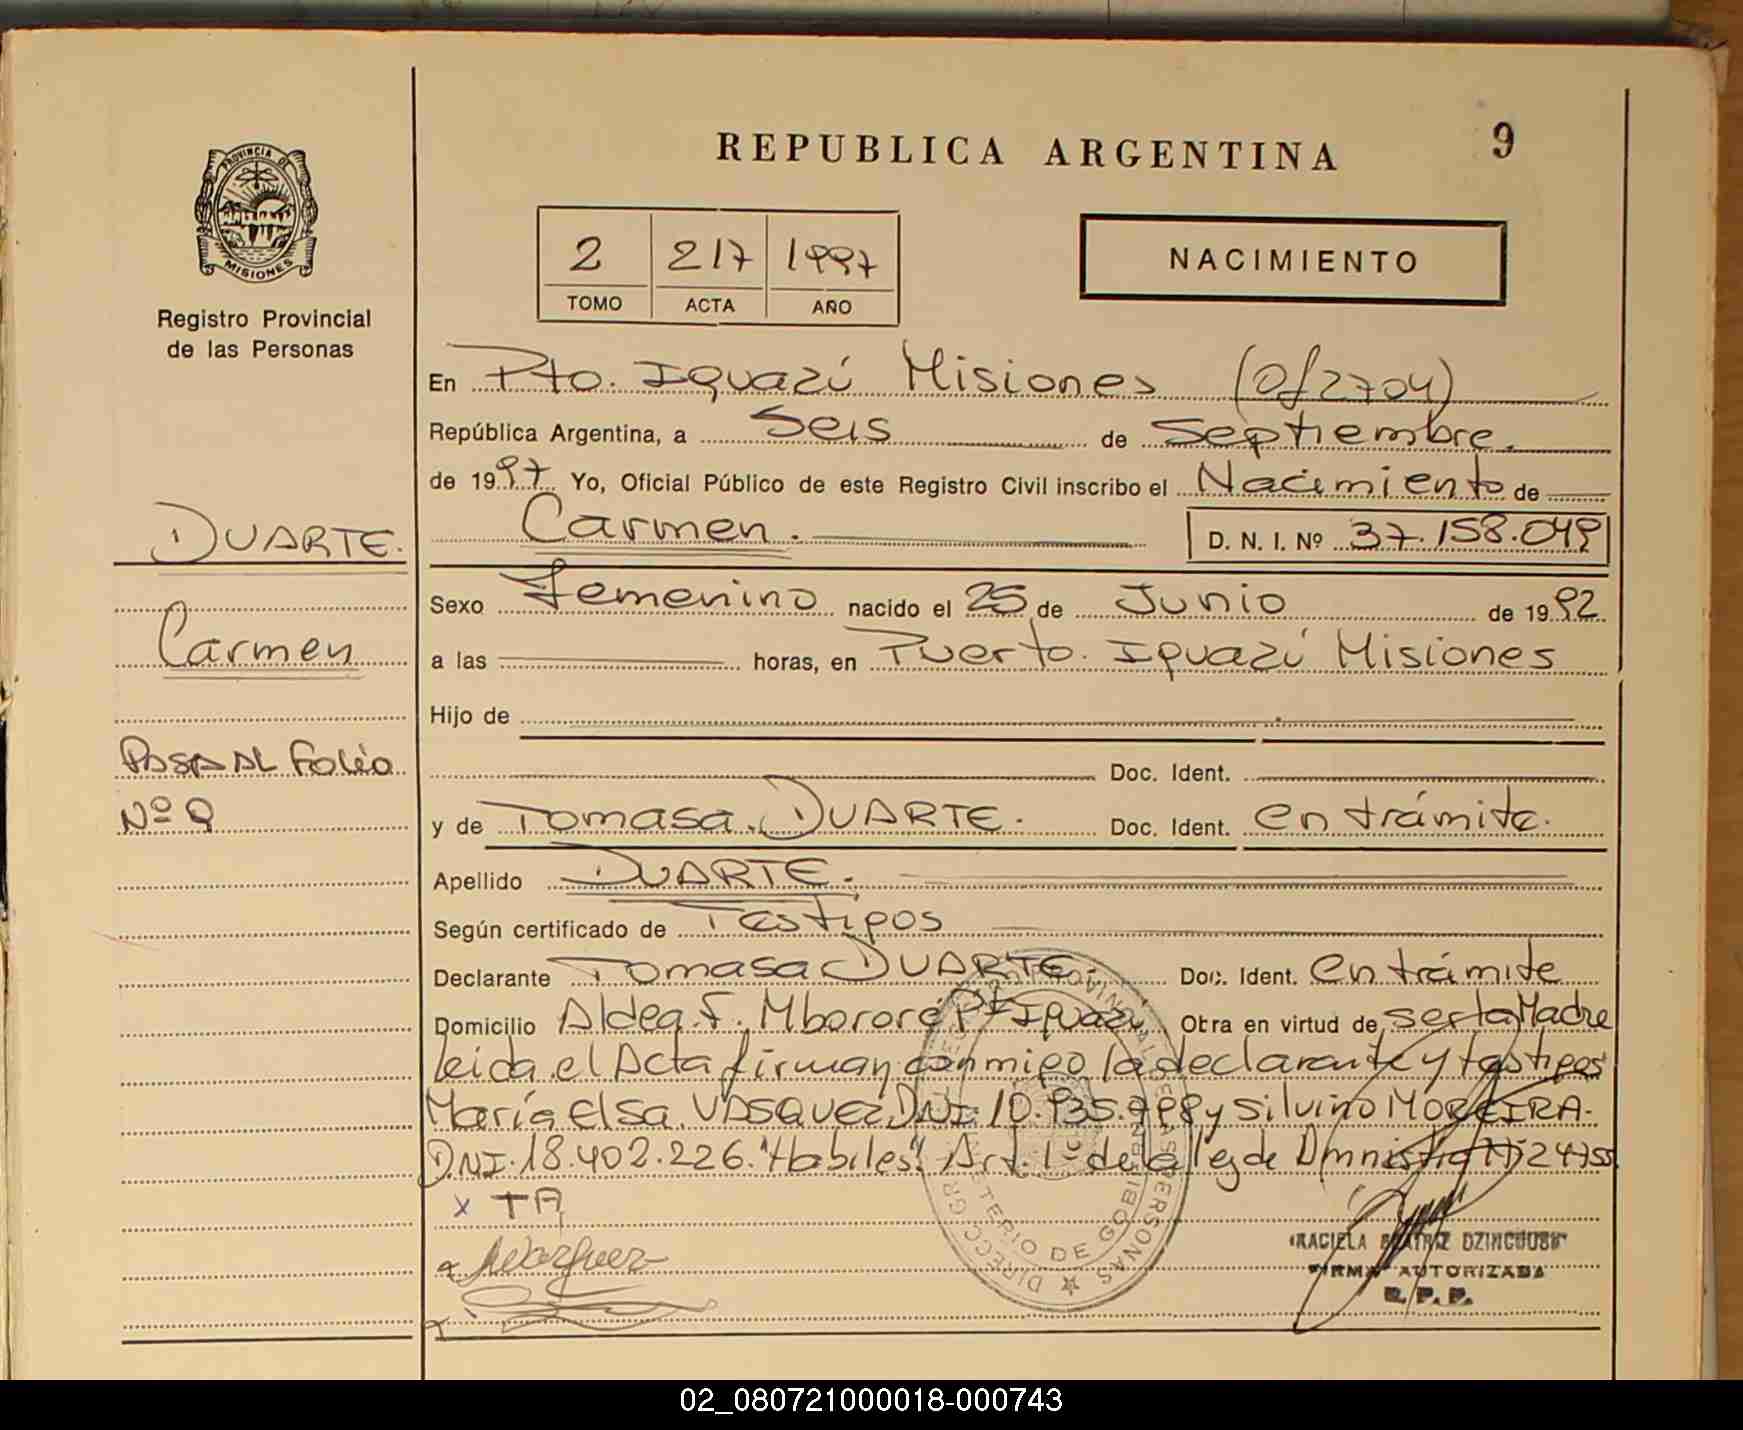 REPUBLICA ARGENTINA
9
PROVINCIA DE
MISIONES
Registro Provincial
de las Personas
2 217 1997
TOMO ACTA AÑO
NACIMIENTO
En Pto. Iguazú Misiones (Of 2704)
República Argentina, a Seis de Septiembre.
de 1997 Yo, Oficial Público de este Registro Civil inscribo el Nacimiento de
Carmen. D. N. I. Nº 37.158.049
DUARTE.
Carmen
Sexo Femenino nacido el 25 de Junio de 1992
a las horas, en Puerto Iguazú Misiones
Hijo de
Doc. Ident.
PASA AL Folio
Nº 9
y de Tomasa DUARTE. Doc. Ident. en trámite.
Apellido DUARTE.
Según certificado de Testigos
Declarante Tomasa DUARTE. Doc. Ident. en trámite
Domicilio Aldea F. Mbororé Pto Iguazú Otra en virtud de ser la Madre
leida el Acta firman conmigo la declarante y testigos
María Elsa VASQUEZ DNI. 10.935. y Silvino MOREIRA.
DNI. 18.402.226. "Habiles". Art. 1º de la ley de Amnistia Nº 24755
x TA
MVazquez
MINISTERIO DE GOBIERNO
GRACIELA BEATRIZ
FIRMA AUTORIZADA
R. P. P.
02_080721000018-000743